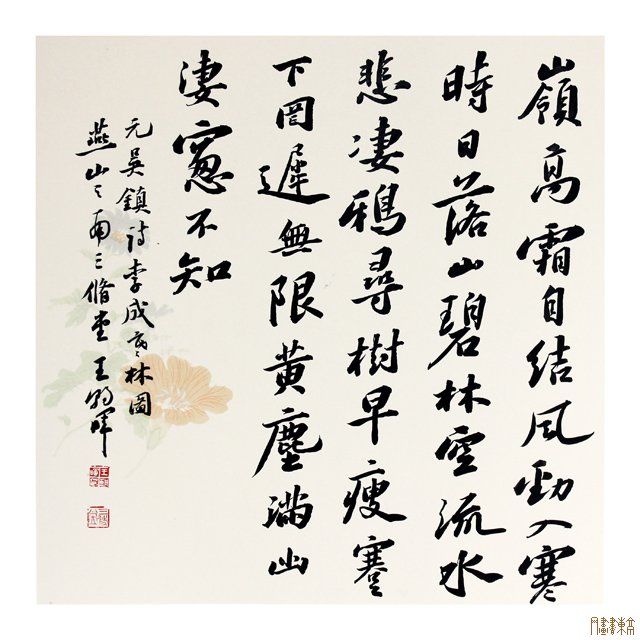 嶺高霜自結風勁入寒
時日落山碧林空流水
悲凄鴉尋樹早瘦蹇
下岡遲無限黄塵滿山
凄窓不知
元吴鎮詩李成寒林圖
燕山之南三脩堂王